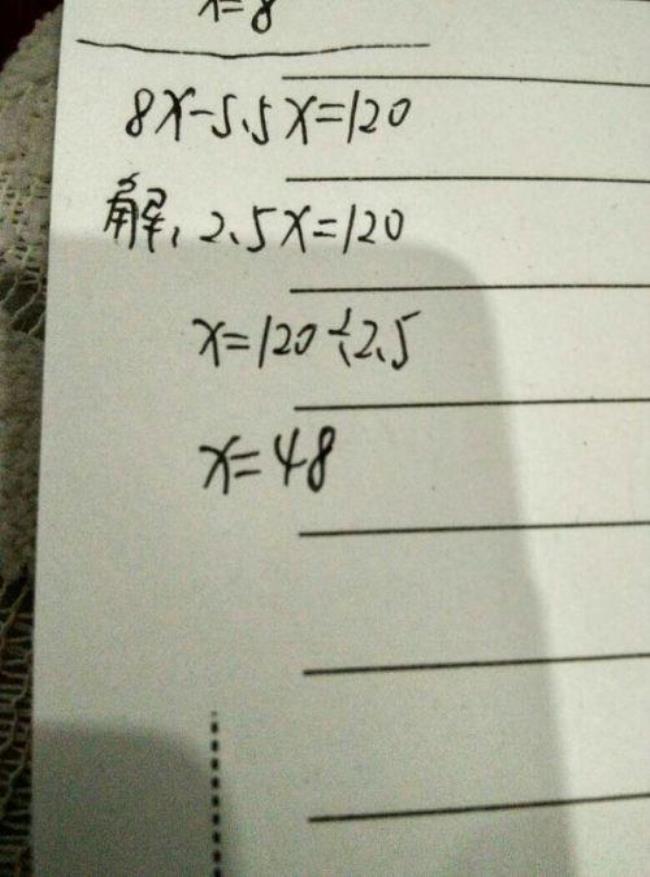 x=8
8x-5.5x=120
解, 2.5x=120
x=120÷2.5
x=48